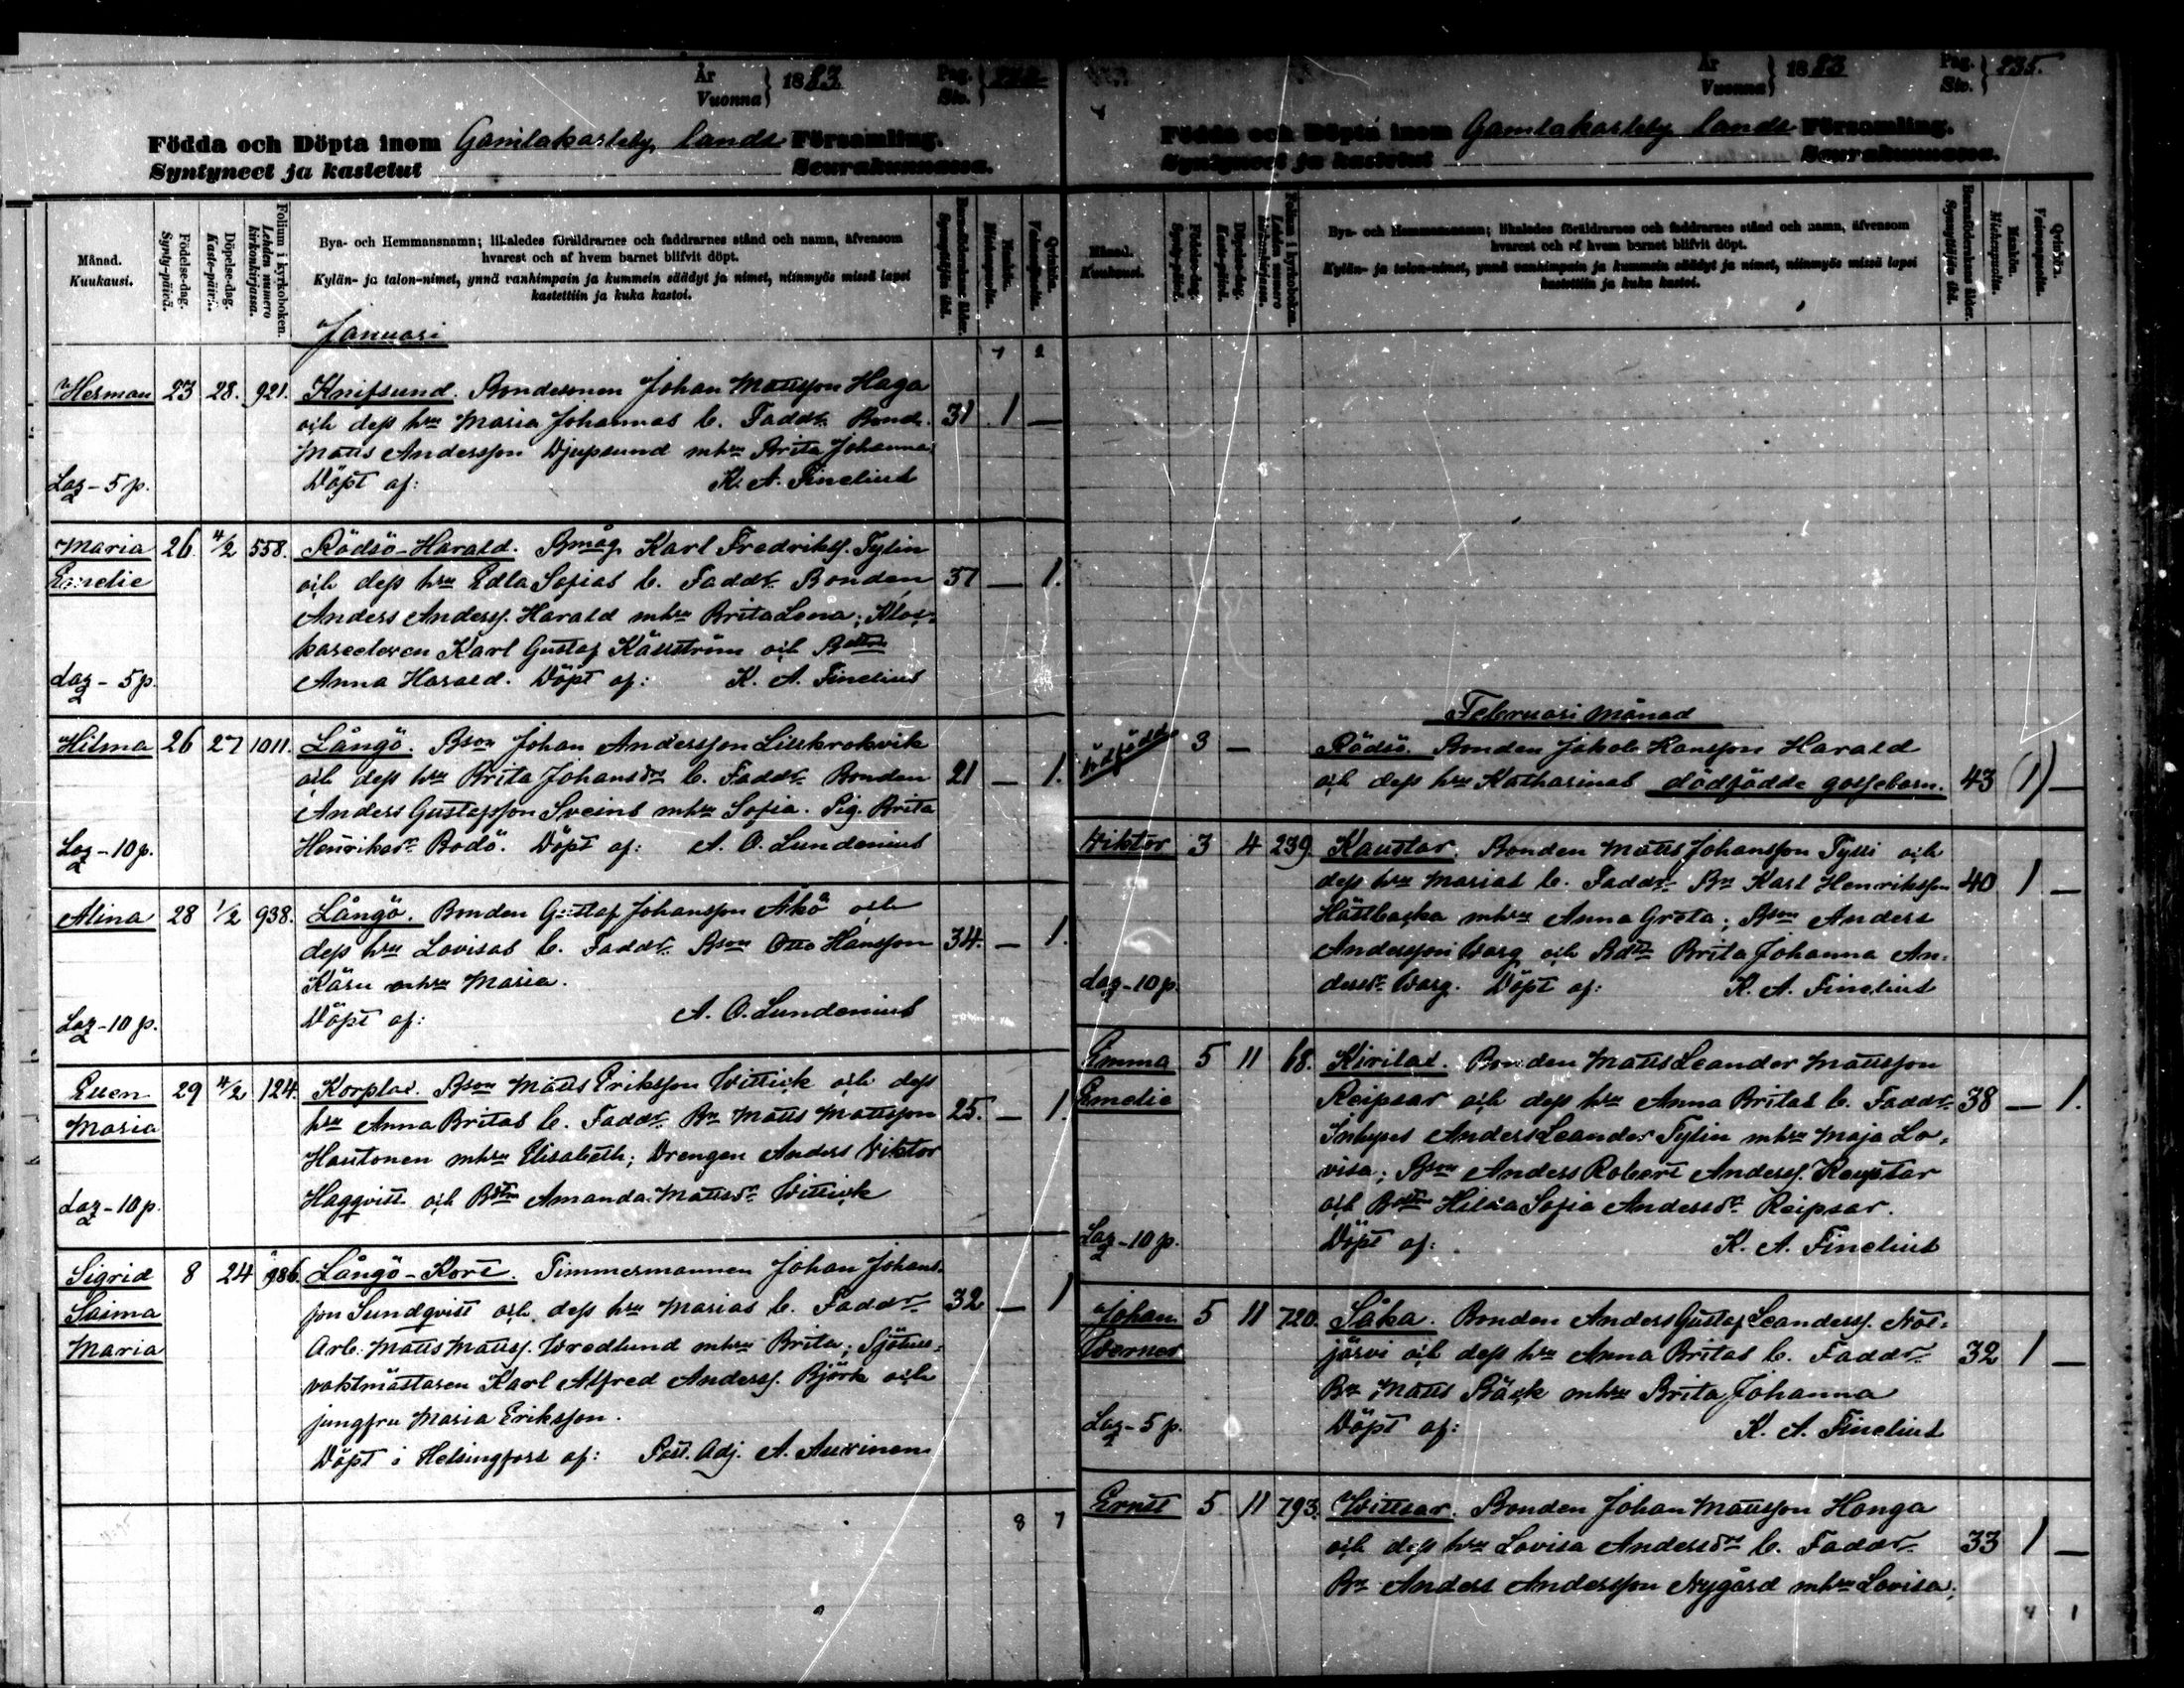 År
Vuonna } 1883
Pag.
Siv. }
Födda och Döpta inom Gamlakarleby lands Församling.
Syntyneet ja kastetut Seurakunnassa.
Månad.
Kuukausi.
Födelse-dag.
Synty-päivä.
Döpelse-dag.
Kaste-päivä.
Folium i kyrkoboken.
Lehden numero kirkonkirjassa.
Bya- och Hemmansnamn; likaledes föräldrarnes och faddrarnes stånd och namn, äfvensom
hvarest och af hvem barnet blifvit döpt.
Kylän- ja talon-nimet, ynnä vanhimpain ja kummein säädyt ja nimet, niinmyös missä lapsi
kastettiin ja kuka kastoi.
Barnaföderskans ålder.
Synnyttäjän ikä.
Mankön.
Miehenpuolta.
Qvinkön.
Vaimonpuolta.
Januari
7 2
Herman 23 28. 921. Knifsund. Bondesonen Johan Mattsson Haga
och dess hru Maria Johannas b. Faddr. Bond. 31 1 —
Matts Andersson Djupsund mhru Brita Johanna
Laz - 5 p. Döpt af: K. A. Finelius
2
Maria 26. 4/2 558. Rödsö-Harald. Bmåg Karl Fredrikss. Tylin
Emelie och dess hru Edla Sofias b. Faddr. Bonden 37 — 1.
Anders Anderss. Harald mhru Brita Lena; Kloc-
kareeleven Karl Gustaf Källström och Bdttrn
laz - 5 p. Anna Harald. Döpt af: K. A. Finelius
2
Hilma 26 27 1011. Långö. Bson Johan Andersson Lillkrokvik
och dess hru Brita Johansdrs b. Faddr. Bonden 21 — 1.
Anders Gustafsson Sveins mhru Sofia. Pig. Brita
Laz - 10 p. Henriksdr. Bodö. Döpt af: A. O. Lundenius
2
Alina 28 1/2 938. Långö. Bonden Gustaf Johansson Åkö och
dess hru Lovisas b. Faddr. Bson Otto Hansson 34. — 1.
Käru mhru Maria.
Laz - 10 p. Döpt af: A. O. Lundenius
2
Ellen 29 4/2 124. Korplax. Bson Matts Eriksson Wittick och dess
Maria hru Anna Britas b. Faddr. Bn Matts Mattsson 25. — 1.
Hautonen mhru Elisabeth; Drengen Anders Viktor
laz - 10 p. Hagqvist och Bdttrn Amanda Mattsdr. Wittick
2
Sigrid 8 24 986. Långö-Kort. Timmermannen Johan Johans-
Saima son Sundqvist och dess hru Marias b. Faddr. 32 — 1
Maria Arb. Matts Mattss. Wredlund mhru Brita; Sjötull-
vaktmästaren Karl Alfred Anderss. Björk och
jungfru Maria Eriksson.
Döpt i Helsingfors af: Past. Adj. A. Auvinen
8 7
År
Vuonna } 1883
Pag.
Siv. } 235.
Födda och Döpta inom Gamlakarleby lands Församling.
Syntyneet ja kastetut Seurakunnassa.
Månad.
Kuukausi.
Födelse-dag.
Synty-päivä.
Döpelse-dag.
Kaste-päivä.
Folium i kyrkoboken.
Lehden numero kirkonkirjassa.
Bya- och Hemmansnamn; likaledes föräldrarnes och faddrarnes stånd och namn, äfvensom
hvarest och af hvem barnet blifvit döpt.
Kylän- ja talon-nimet, ynnä vanhimpain ja kummein säädyt ja nimet, niinmyös missä lapsi
kastettiin ja kuka kastoi.
Barnaföderskans ålder.
Synnyttäjän ikä.
Mankön.
Miehenpuolta.
Qvinkön.
Vaimonpuolta.
Februari månad
dödfödd 3 — Rödsö. Bonden Jakob Hansson Harald
och dess hru Katharinas dödfödde gossebarn. 43 (1) —
Viktor 3 4 239. Kaustar. Bonden Matts Johansson Tylli och
dess hru Marias b. Faddr. Bn Karl Henriksson 40 1 —
Hästbacka mhru Anna Greta; Bson Anders
Andersson Warg och Bdttr Brita Johanna An-
laz - 10 p. dersdr. Warg. Döpt af: K. A. Finelius
Emma 5 11 68. Kivilax. Bonden Matts Leander Mattsson
Emelie Reipsar och dess hru Anna Britas b. Faddr. 38 — 1.
Inhyses Anders Leander Tylin mhru Maja Lo-
visa; Bson Anders Robert Anderss. Kaustar
och Bdttrn Hilda Sofia Andersdr. Reipsar.
Laz - 10 p. Döpt af: K. A. Finelius
2
Johan 5 11 720. Såka. Bonden Anders Gustaf Leanderss. Not-
Werner järvi och dess hru Anna Britas b. Faddr. 32 1 —
Bn Matts Bäck mhru Brita Johanna
Laz - 5 p. Döpt af: K. A. Finelius
2
Ernst 5 11 793. Wittsar. Bonden Johan Mattsson Honga
och dess hru Lovisa Andersdrs b. Faddr. 33 1 —
Bn Anders Andersson Nygård mhru Lovisa;
4 1